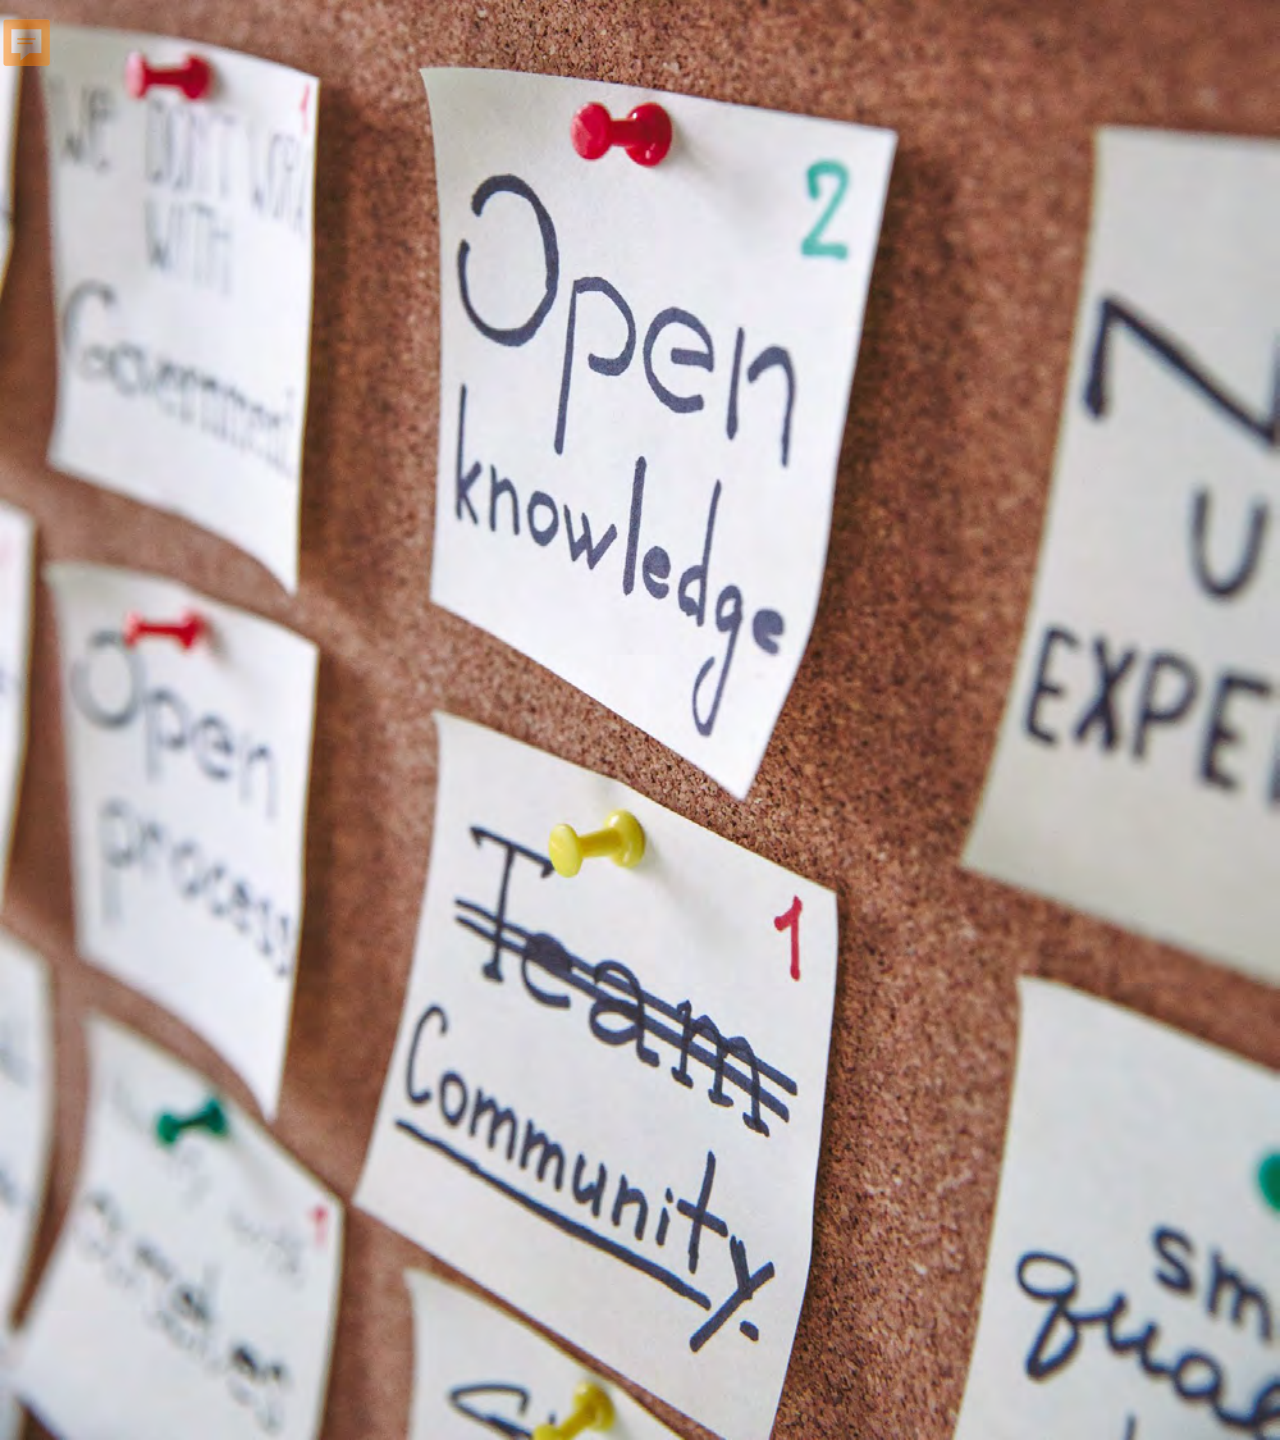 1
we DON'T WORK
WITH
Government
2
Open
knowledge
Open
process
1
Team
Community.
1
U
EXPE
sm
qual